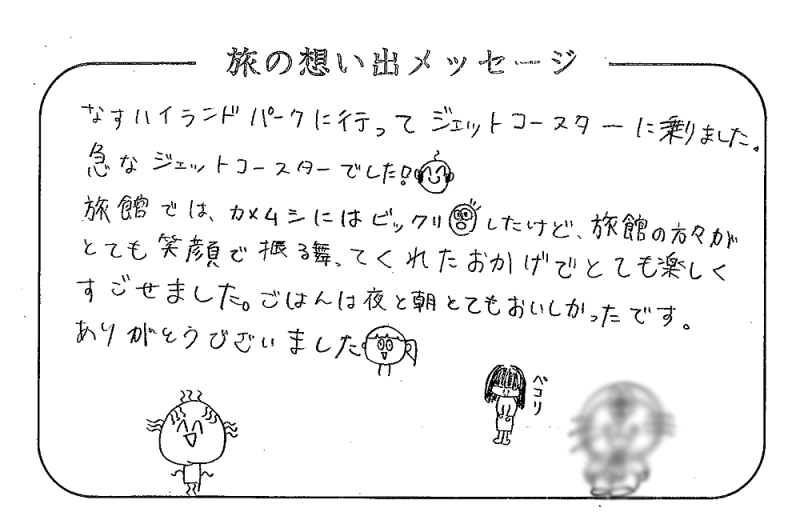 旅の想い出メッセージ
なすハイランドパークに行ってジェットコースターに乗りました。
急なジェットコースターでした!
旅館では、カメムシにはビックリしたけど、旅館の方々が
とても笑顔で振る舞ってくれたおかげでとても楽しく
すごせました。ごはんは夜と朝とてもおいしかったです。
ありがとうございました
ペコリ